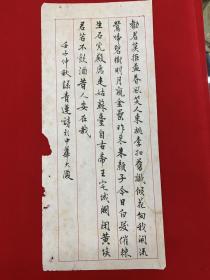 勸君莫拒盃春風笑人來桃李如舊識傾花向我開流
鶯啼碧樹明月窺金罍昨來朱顏子今日白髮催棘
生石虎殿鹿走姑蘇臺自古帝王宅城闕閉黃埃
君若不飲酒昔人安在哉
壬子仲秋錄青蓮詩於中華大廈